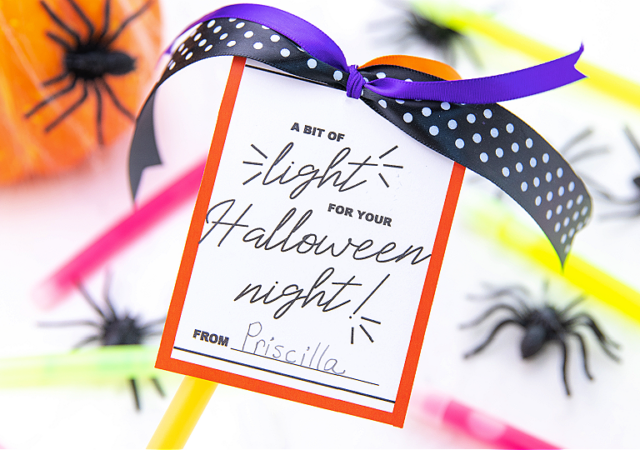 A BIT OF
light
FOR YOUR
Halloween
night!
FROM Priscilla